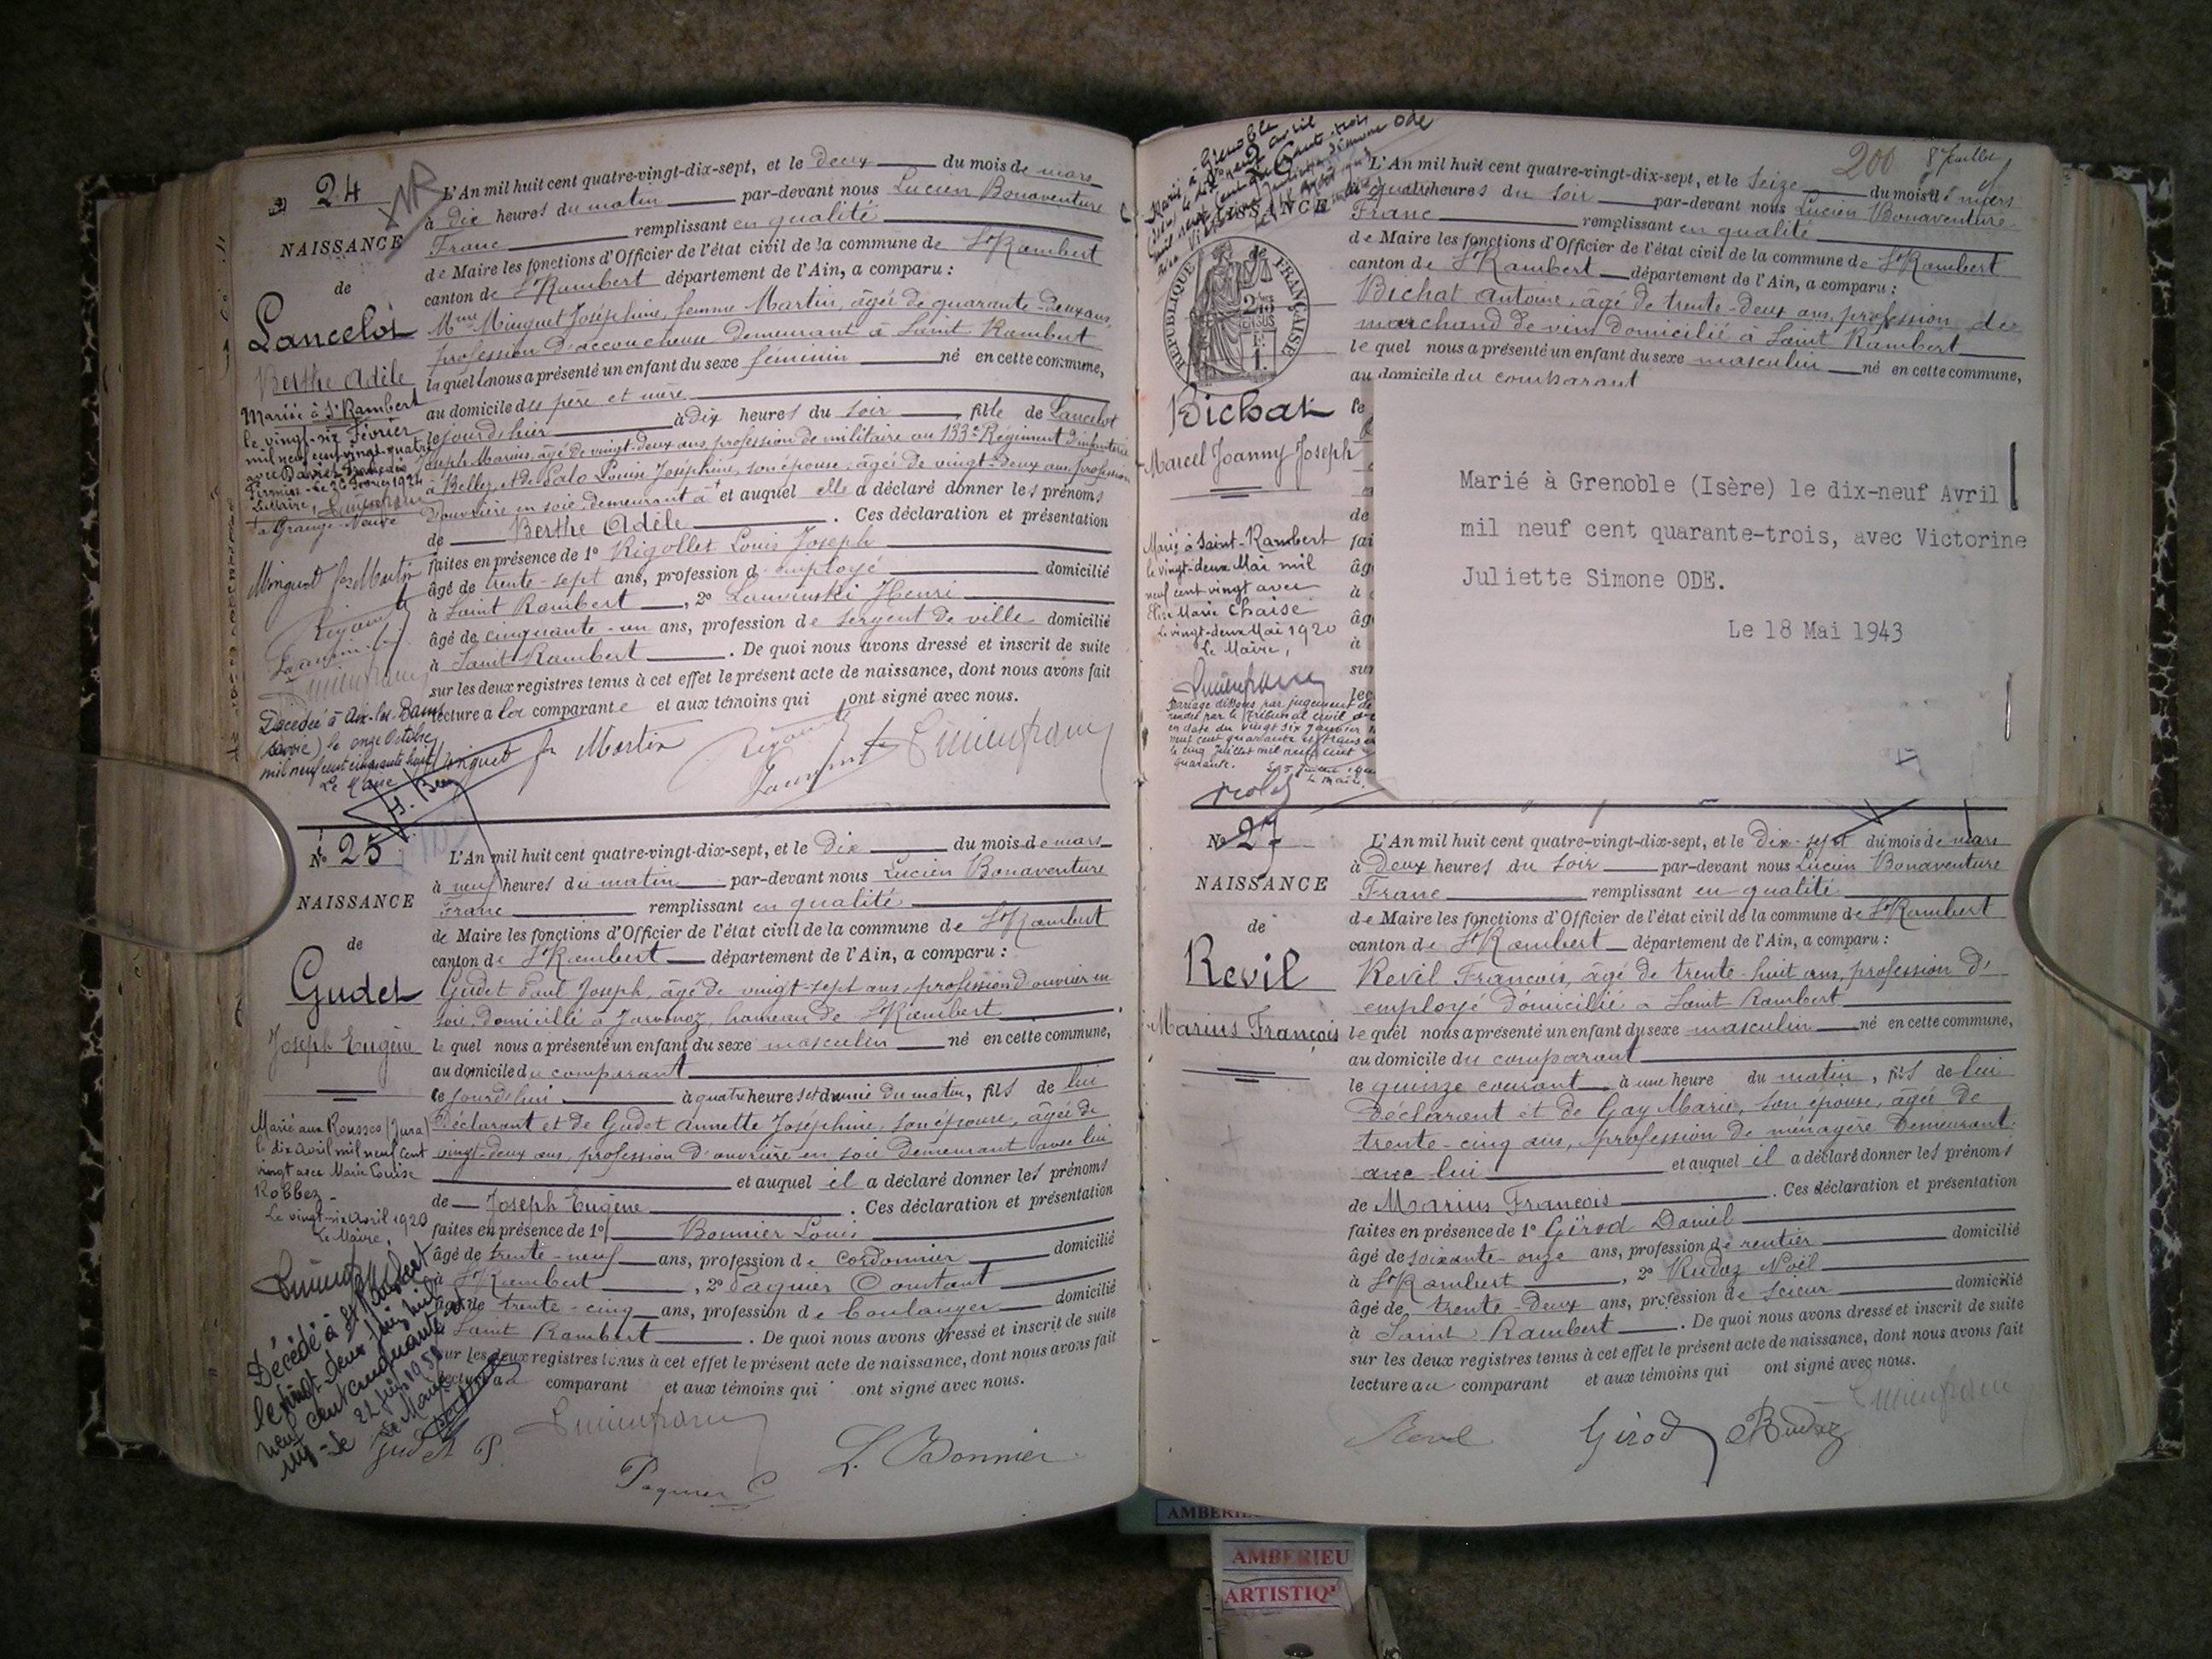 24
NAISSANCE
de
Lancelot
Berthe Adèle
Mariée à St Rambert
le vingt-six Février
mil neuf cent vingt-quatre
avec Davier François
Firmin - Le 26 Février 1924
Le Maire,
la Grange-Neuve
L'An mil huit cent quatre-vingt-dix-sept, et le deux du mois de mars
à dix heures du matin par-devant nous Lucien Bonaventure
Franc remplissant en qualité
de Maire les fonctions d'Officier de l'état civil de la commune de St Rambert
canton de St Rambert département de l'Ain, a comparu :
Mme Minguet Joséphine, femme Martin, âgée de quarante-deux ans,
profession d'accoucheuse demeurant à Saint Rambert
laquelle nous a présenté un enfant du sexe féminin né en cette commune,
au domicile des père et mère
le jourd'hier à dix heures du soir, fille de Lancelot
Joseph Marius, âgé de vingt-deux ans profession de militaire au 133e Régiment d'infanterie
à Belley, et de Lalo Louise Joséphine, son épouse, âgée de vingt-deux ans, profession
d'ouvrière en soie, demeurant à et auquel elle a déclaré donner les prénoms
de Berthe Adèle. Ces déclaration et présentation
faites en présence de 1º Rigollet Louis Joseph
âgé de trente-sept ans, profession d'employé domicilié
à Saint Rambert, 2º Henri
âgé de cinquante-un ans, profession de sergent de ville domicilié
à Saint Rambert. De quoi nous avons dressé et inscrit de suite
sur les deux registres tenus à cet effet le présent acte de naissance, dont nous avons fait
lecture à la comparante et aux témoins qui ont signé avec nous.
Minguet fe Martin
Décédée à Aix-les-Bains
(Savoie) le onze Octobre
mil neuf cent cinquante huit
Le Maire
Minguet fe Martin
Nº 25
NAISSANCE
de
Gudet
Joseph Eugène
Marié aux Rousses (Jura)
le dix avril mil neuf cent
vingt avec Marie Louise
Robbez -
Le vingt-six Avril 1920
Le Maire,
Décédé à St Rambert
le vingt-deux juin mil
neuf cent cinquante et
un - Le 22 juin 1951
Le Maire
L'An mil huit cent quatre-vingt-dix-sept, et le dix du mois de mars
à neuf heures du matin par-devant nous Lucien Bonaventure
Franc remplissant en qualité
de Maire les fonctions d'Officier de l'état civil de la commune de St Rambert
canton de St Rambert département de l'Ain, a comparu :
Gudet Paul Joseph, âgé de vingt-sept ans, profession d'ouvrier en
soie, domicilié à Javornoz, hameau de St Rambert
lequel nous a présenté un enfant du sexe masculin né en cette commune,
au domicile du comparant
le jourd'hui à quatre heures et demie du matin, fils de lui
déclarant et de Gudet Annette Joséphine, son épouse, âgée de
vingt-deux ans, profession d'ouvrière en soie demeurant avec lui
et auquel il a déclaré donner les prénoms
de Joseph Eugène. Ces déclaration et présentation
faites en présence de 1º Bonnier Louis
âgé de trente-neuf ans, profession de cordonnier domicilié
à St Rambert, 2º Paquier Constant
âgé de trente-cinq ans, profession de boulanger domicilié
à Saint Rambert. De quoi nous avons dressé et inscrit de suite
sur les deux registres tenus à cet effet le présent acte de naissance, dont nous avons fait
lecture au comparant et aux témoins qui ont signé avec nous.
Gudet P.
Paquier C
L. Bonnier
NAISSANCE
RÉPUBLIQUE FRANÇAISE
Bichat
Marcel Joanny Joseph
Marié à Saint-Rambert
le vingt-deux Mai mil
neuf cent vingt avec
Elise Marie Chaise
Le vingt-deux Mai 1920
Le Maire,
Mariage dissous par jugement de
rendu par le Tribunal civil de
en date du vingt six Janvier
neuf cent quarante
le cinq Juillet mil neuf cent
quarante.
Le Maire.
200 8 Juillet
L'An mil huit cent quatre-vingt-dix-sept, et le seize du mois de mars
à quatre heures du soir par-devant nous Lucien Bonaventure
Franc remplissant en qualité
de Maire les fonctions d'Officier de l'état civil de la commune de St Rambert
canton de St Rambert département de l'Ain, a comparu :
Bichat Antoine, âgé de trente-deux ans, profession de
marchand de vin domicilié à Saint Rambert
lequel nous a présenté un enfant du sexe masculin né en cette commune,
au domicile du comparant
Marié à Grenoble (Isère) le dix-neuf Avril
mil neuf cent quarante-trois, avec Victorine
Juliette Simone ODE.
Le 18 Mai 1943
Nº 27
NAISSANCE
de
Revil
Marius François
L'An mil huit cent quatre-vingt-dix-sept, et le dix-sept du mois de mars
à deux heures du soir par-devant nous Lucien Bonaventure
Franc remplissant en qualité
de Maire les fonctions d'Officier de l'état civil de la commune de St Rambert
canton de St Rambert département de l'Ain, a comparu :
Revil François, âgé de trente-huit ans, profession d'
employé domicilié à Saint-Rambert
lequel nous a présenté un enfant du sexe masculin né en cette commune,
au domicile du comparant
le quinze courant à une heure du matin, fils de lui
déclarant et de Gay Marie, son épouse, âgée de
trente-cinq ans, profession de ménagère demeurant
avec lui et auquel il a déclaré donner les prénoms
de Marius François. Ces déclaration et présentation
faites en présence de 1º Girod Daniel
âgé de soixante-onze ans, profession de rentier domicilié
à St Rambert, 2º Rudaz Noël
âgé de trente-deux ans, profession de scieur domicilié
à Saint Rambert. De quoi nous avons dressé et inscrit de suite
sur les deux registres tenus à cet effet le présent acte de naissance, dont nous avons fait
lecture au comparant et aux témoins qui ont signé avec nous.
Revil Girod Rudaz
AMBERIEU
ARTISTIQ'